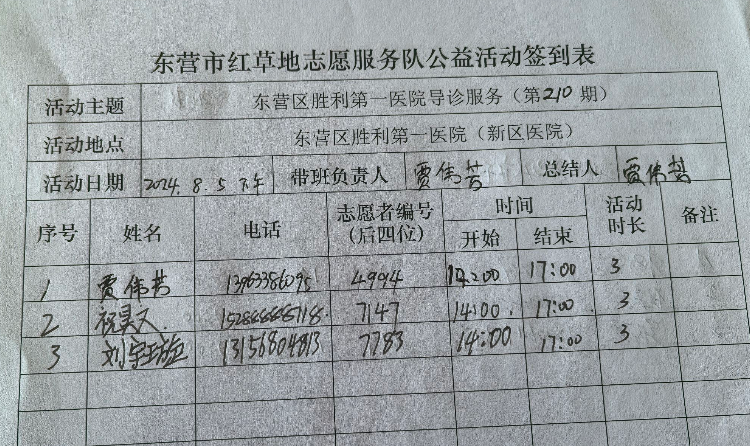 东营市红草地志愿服务队公益活动签到表
活动主题 东营区胜利第一医院导诊服务（第210期）
活动地点 东营区胜利第一医院（新区医院）
活动日期 2024.8.5下午 带班负责人 贾伟芳 总结人 贾伟芳
序号 姓名 电话 志愿者编号（后四位） 时间 开始 结束 活动时长 备注
1 贾伟芳 13963386095 4994 14:00 17:00 3
2 祝昊天 7147 14:00 17:00 3
3 刘宇 13156804813 7783 14:00 17:00 3